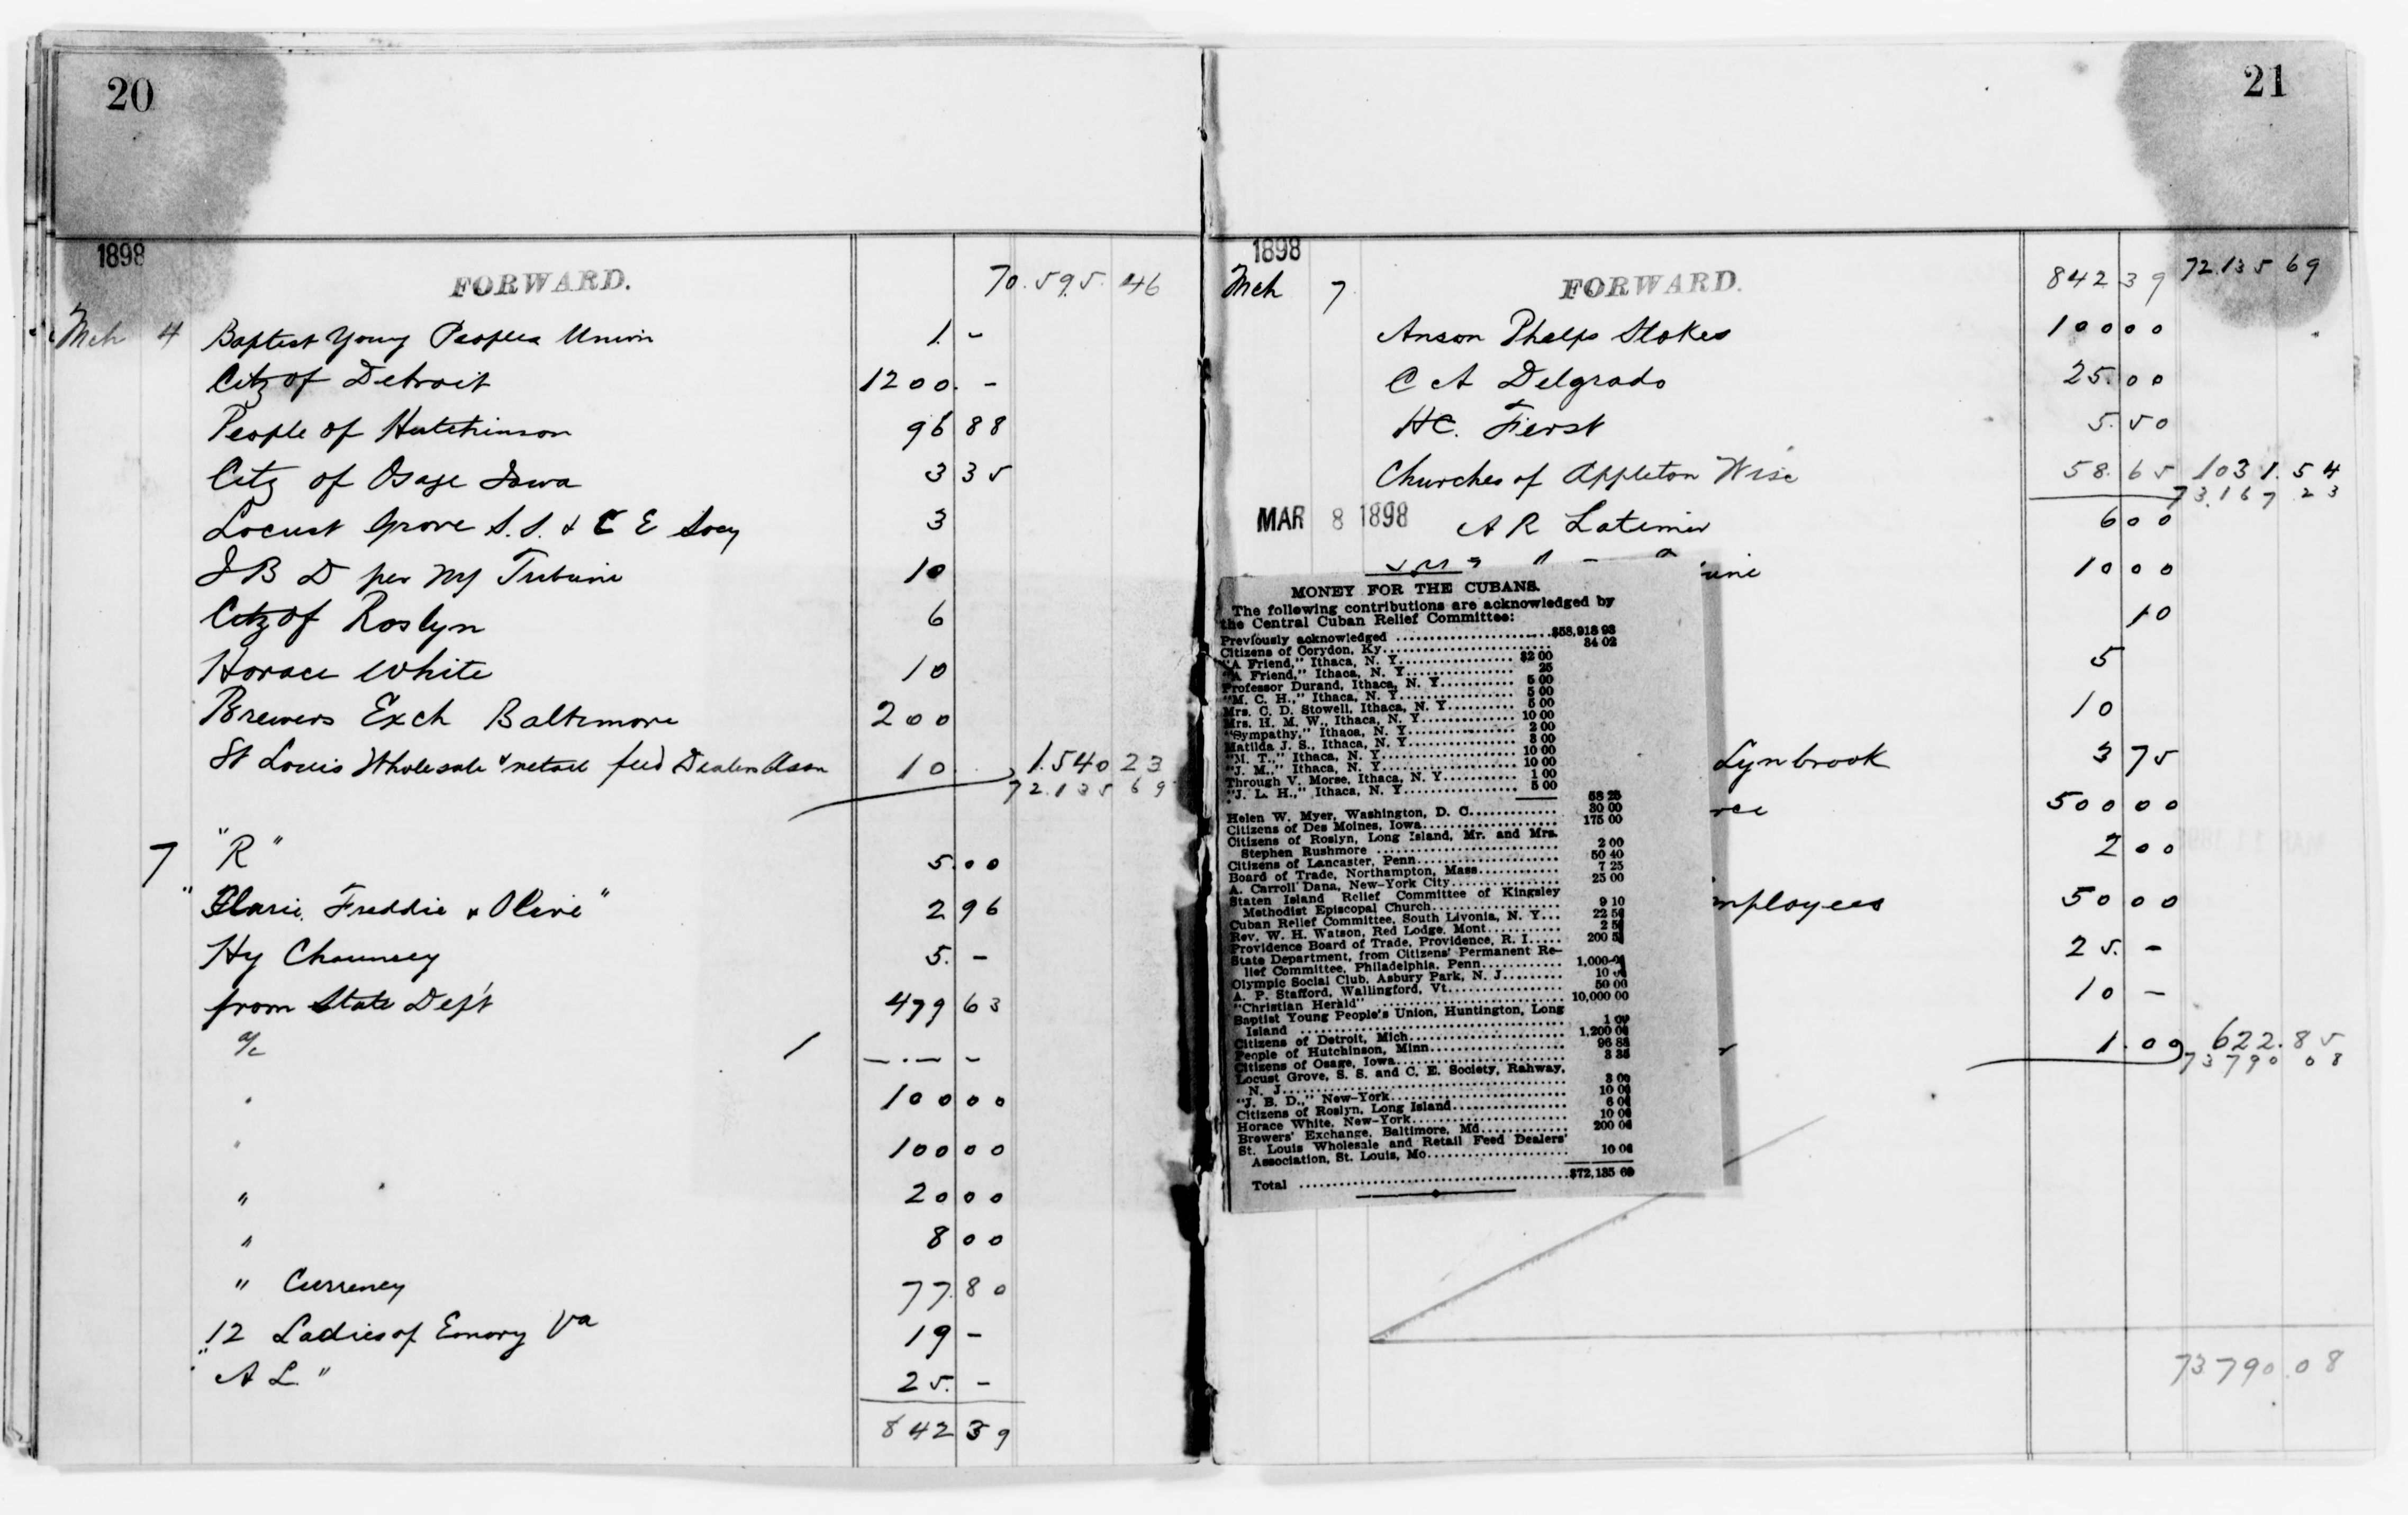 20
1898
FORWARD. 70.595.46
Mch 4 Baptist Young Peoples Union 1.-
City of Detroit 1200.-
People of Hutchinson 96 88
City of Osage Iowa 3 35
Locust Grove S.S. & C E Socy 3
J B D per NY Tribune 10
City of Roslyn 6
Horace White 10
Brewers Exch Baltimore 200
St Louis Wholesale & retail feed Dealers Assn 10 1.540 23
72.135 69
7 "R" 5.00
" Freddie & Olive" 2 96
Hy Chauncey 5.-
from State Dep't 479 63
a/c 1 —.— -
" 100 00
" 100 00
" 20 00
" 8 00
" Currency 77.80
12 Ladies of Emory Va 19 -
"A L" 25.-
842 39
21
1898
Mch 7 FORWARD. 842 39 72.135 69
Anson Phelps Stokes 100 00
C A Delgrado 25.00
HC. Fierst 5.50
Churches of Appleton Wisc 58.65 1031.54
73.167 23
MAR 8 1898 A R Latimer 6 00
une 10 00
10
5
10
Lynbrook 3 75
rce 500 00
2 00
mployees 50 00
25.-
10 -
1.00 622.85
73790 08
73790.08
MONEY FOR THE CUBANS.
The following contributions are acknowledged by
the Central Cuban Relief Committee:
Previously acknowledged ....$58,918 93
Citizens of Corydon, Ky.... 34 02
"A Friend," Ithaca, N. Y.... $2 00
"A Friend," Ithaca, N. Y.... 25
Professor Durand, Ithaca, N. Y.... 5 00
"M. C. H.," Ithaca, N. Y.... 5 00
Mrs. C. D. Stowell, Ithaca, N. Y.... 5 00
Mrs. H. M. W., Ithaca, N. Y.... 10 00
"Sympathy," Ithaca, N. Y.... 2 00
Matilda J. S., Ithaca, N. Y.... 3 00
"M. T.," Ithaca, N. Y.... 10 00
"J. M.," Ithaca, N. Y.... 10 00
Through V. Morse, Ithaca, N. Y.... 1 00
"J. L. H.," Ithaca, N. Y.... 5 00
58 25
Helen W. Myer, Washington, D. C.... 30 00
Citizens of Des Moines, Iowa.... 175 00
Citizens of Roslyn, Long Island, Mr. and Mrs.
Stephen Rushmore .... 2 00
Citizens of Lancaster, Penn.... 50 40
Board of Trade, Northampton, Mass.... 7 25
A. Carroll Dana, New-York City.... 25 00
Staten Island Relief Committee of Kingsley
Methodist Episcopal Church.... 9 10
Cuban Relief Committee, South Livonia, N. Y.... 22 50
Rev. W. H. Watson, Red Lodge, Mont.... 2 5
Providence Board of Trade, Providence, R. I.... 200 5
State Department, from Citizens' Permanent Re-
lief Committee, Philadelphia, Penn.... 1,000
Olympic Social Club, Asbury Park, N. J.... 10
A. P. Stafford, Wallingford, Vt.... 50 00
"Christian Herald" .... 10,000 00
Baptist Young People's Union, Huntington, Long
Island .... 1 00
Citizens of Detroit, Mich.... 1,200 00
People of Hutchinson, Minn.... 96 88
Citizens of Osage, Iowa.... 3 35
Locust Grove, S. S. and C. E. Society, Rahway,
N. J.... 3 00
"J. B. D.," New-York.... 10 00
Citizens of Roslyn, Long Island.... 6 00
Horace White, New-York.... 10 00
Brewers' Exchange, Baltimore, Md.... 200 00
St. Louis Wholesale and Retail Feed Dealers'
Association, St. Louis, Mo.... 10 00
Total ....$72,135 69